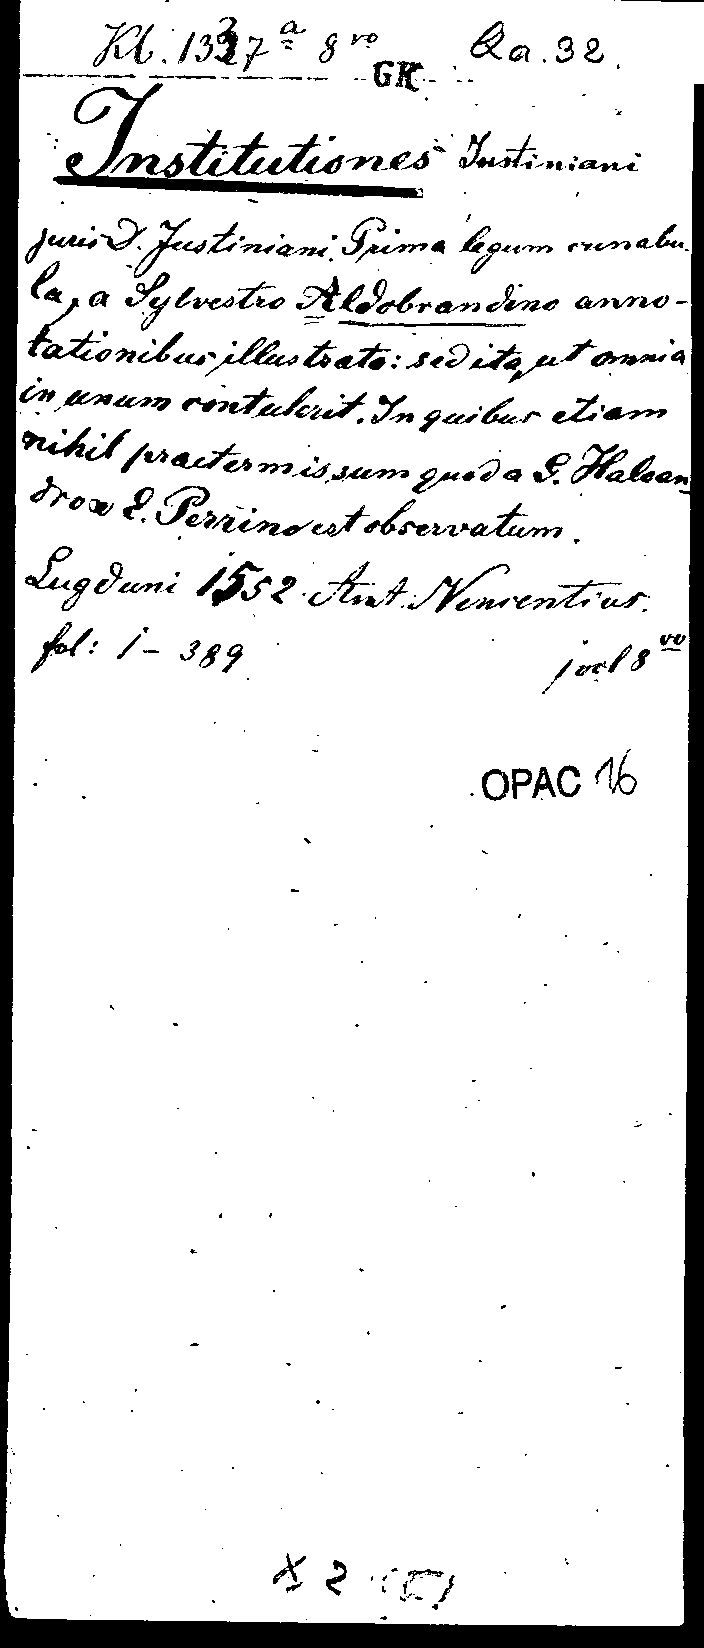 Kl. 1337ª 8vo Qa. 32.
GK
Institutiones Justiniani
juris D. Justiniani. Prima legum cunabu-
la, a Sylvestro Aldobrandino anno-
tationibus illustrata: sed ita, ut omnia
in unum contulerit. In quibus etiam
nihil praetermissum quod a G. Haloan-
dro e E. Perrino est observatum.
Lugduni 1552 Ant. Vincentius.
fol: 1 - 389 8vo
OPAC 16
X 2